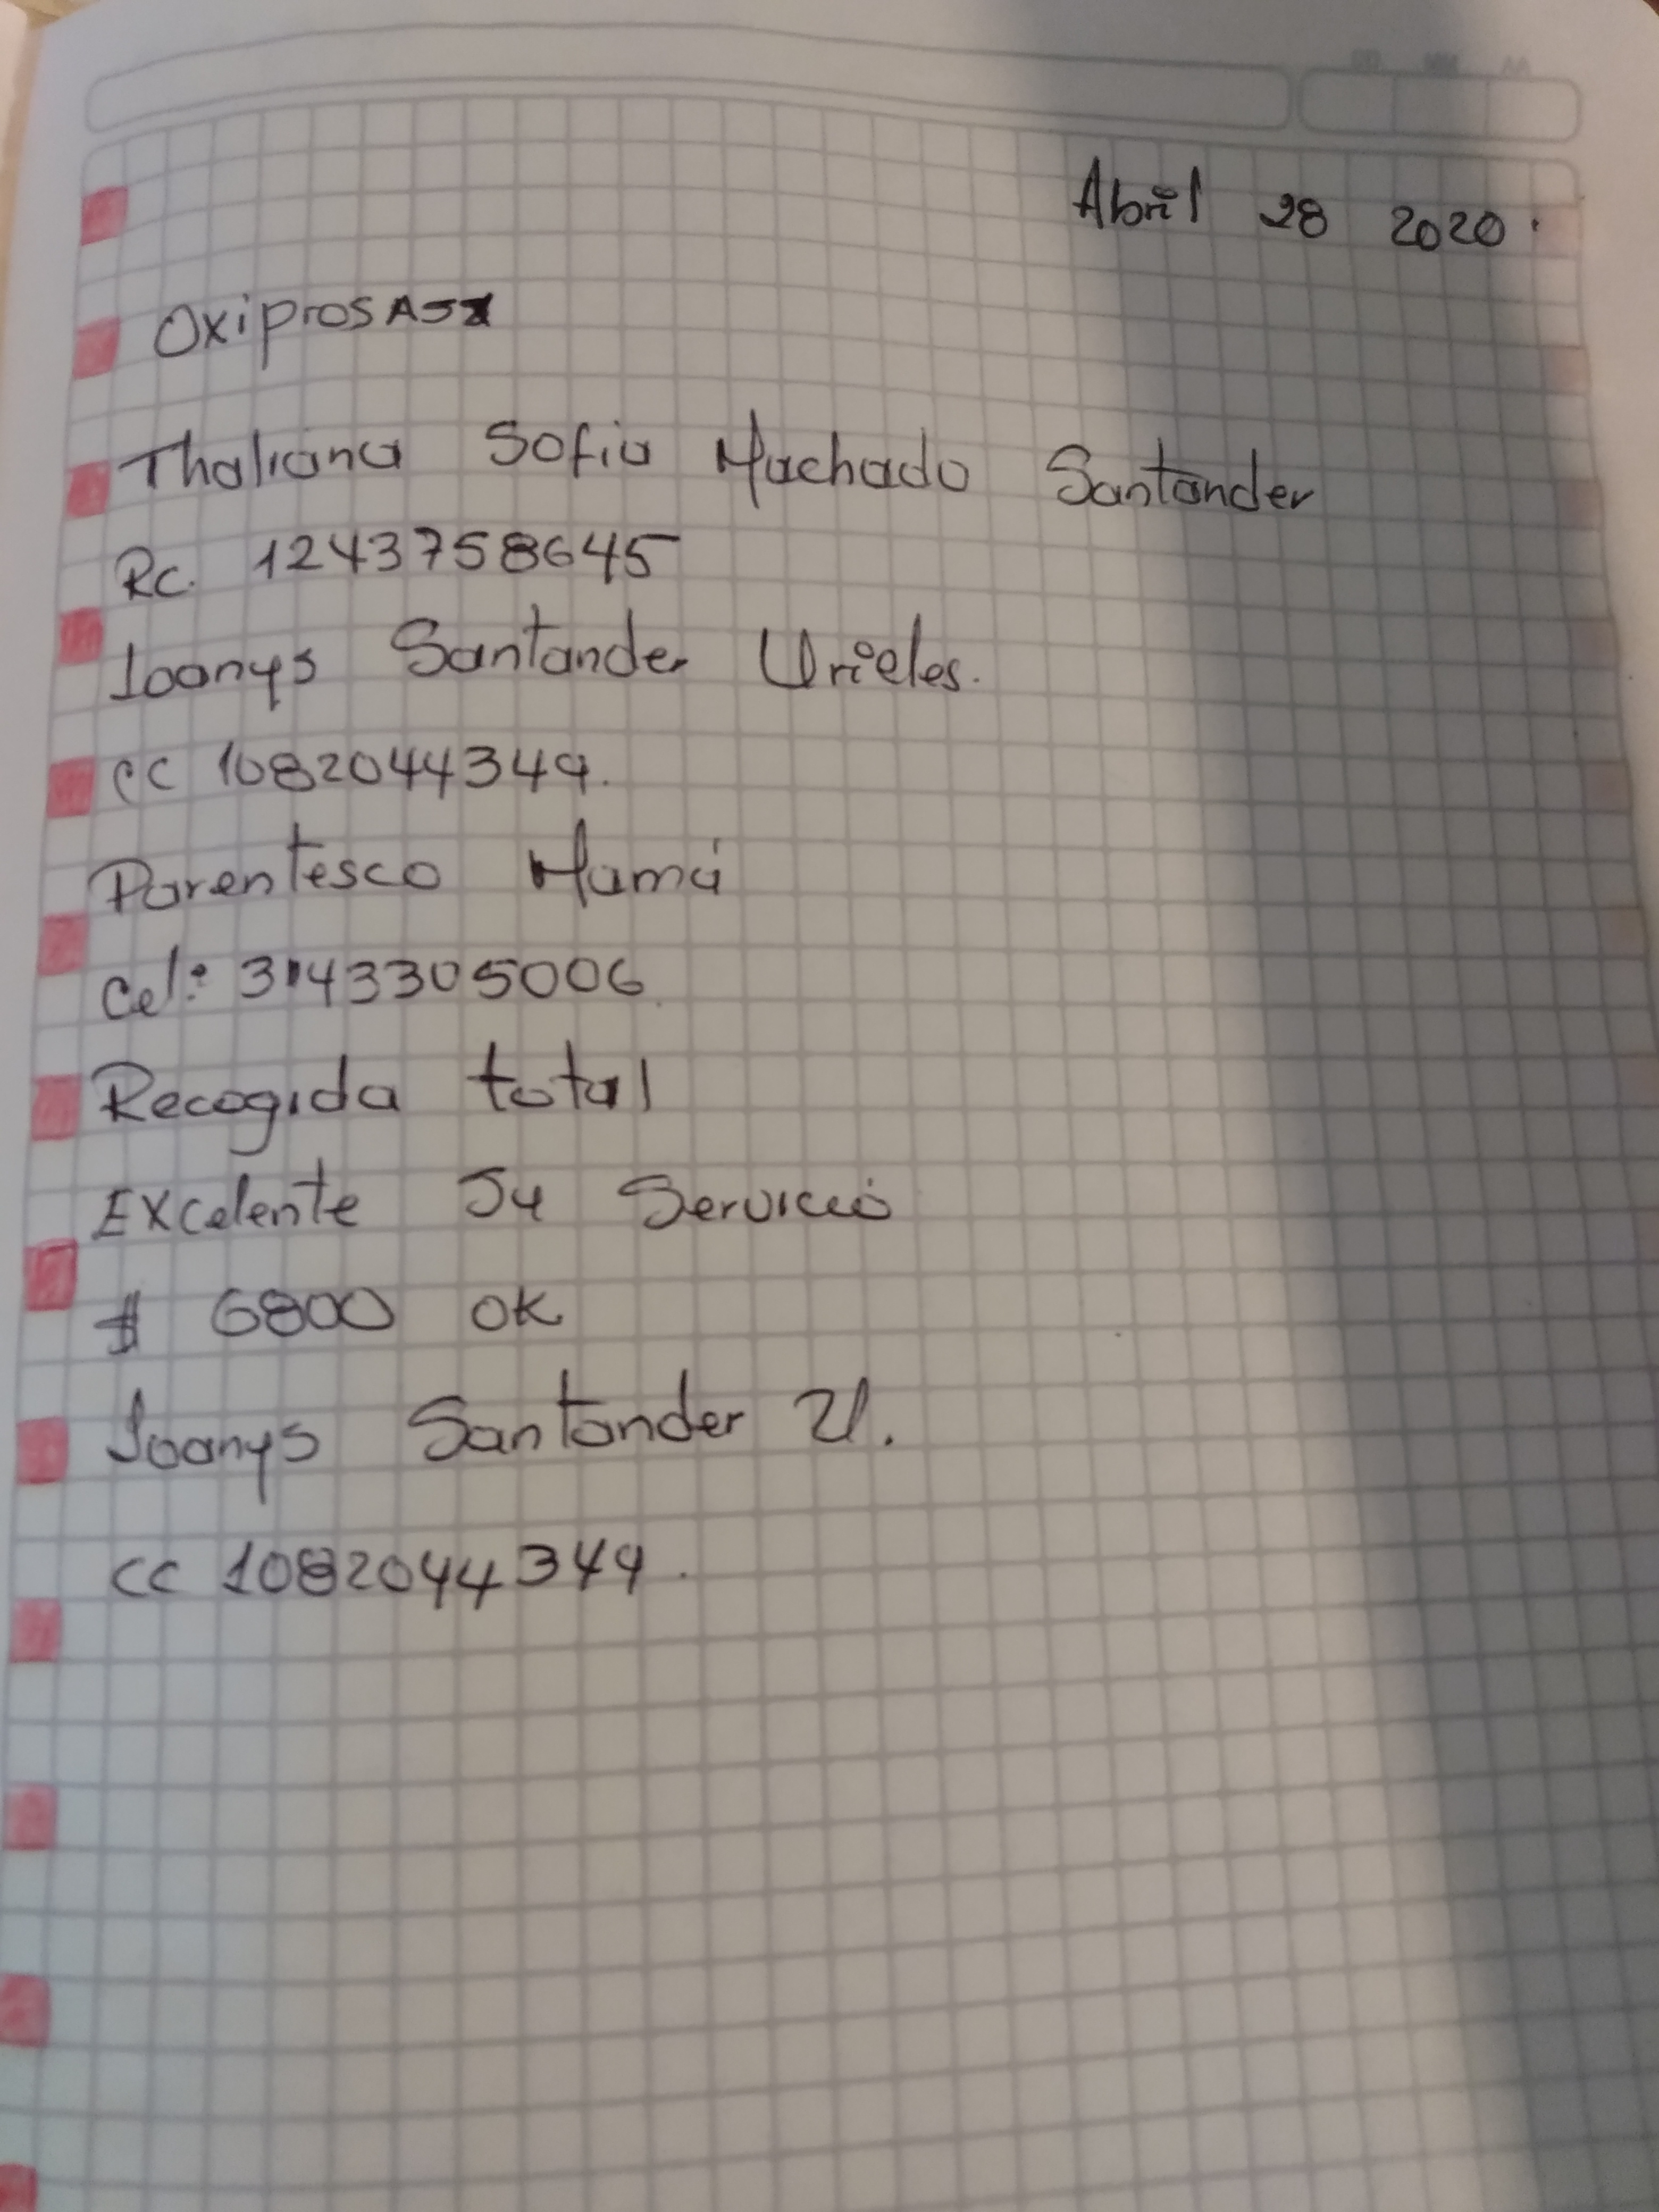 Abril 28 2020.
Thaliana Sofia Machado Santander
Rc. 12437 58645
Ioanys Santander Urieles.
CC 1082044349.
Parentesco Mamá
Cel: 3143305006
Recogida total
Excelente su Servicio
$ 6800 OK
Ioanys Santander U.
CC 1082044349.